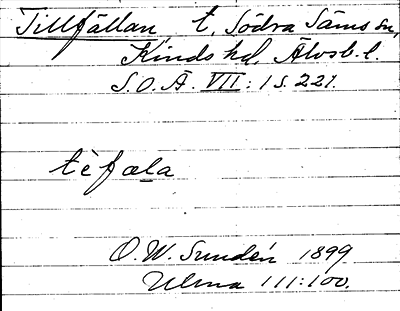 Tillfällan, t. Södra Säms sn,
Kinds hd, Älvsb. l.
S.O.Ä. VII: 1 s. 221.
tèfæla
O. W. Sundén 1899
Ulma 111:100.